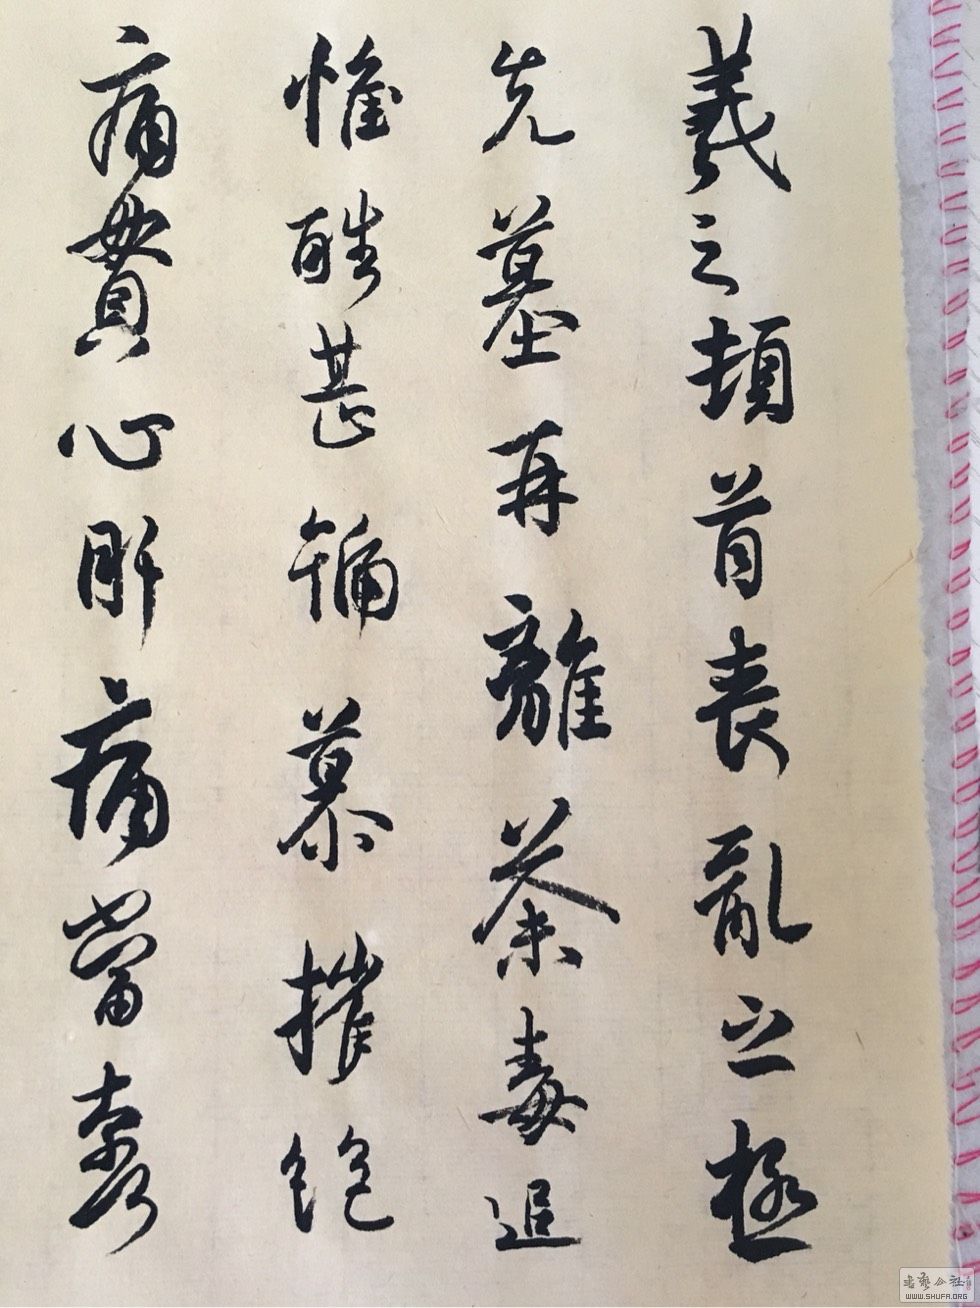 羲之頓首喪亂之極
先墓再離荼毒追
惟酷甚號慕摧絕
痛貫心肝痛當奈
書藝公社
WWW.SHUFA.ORG